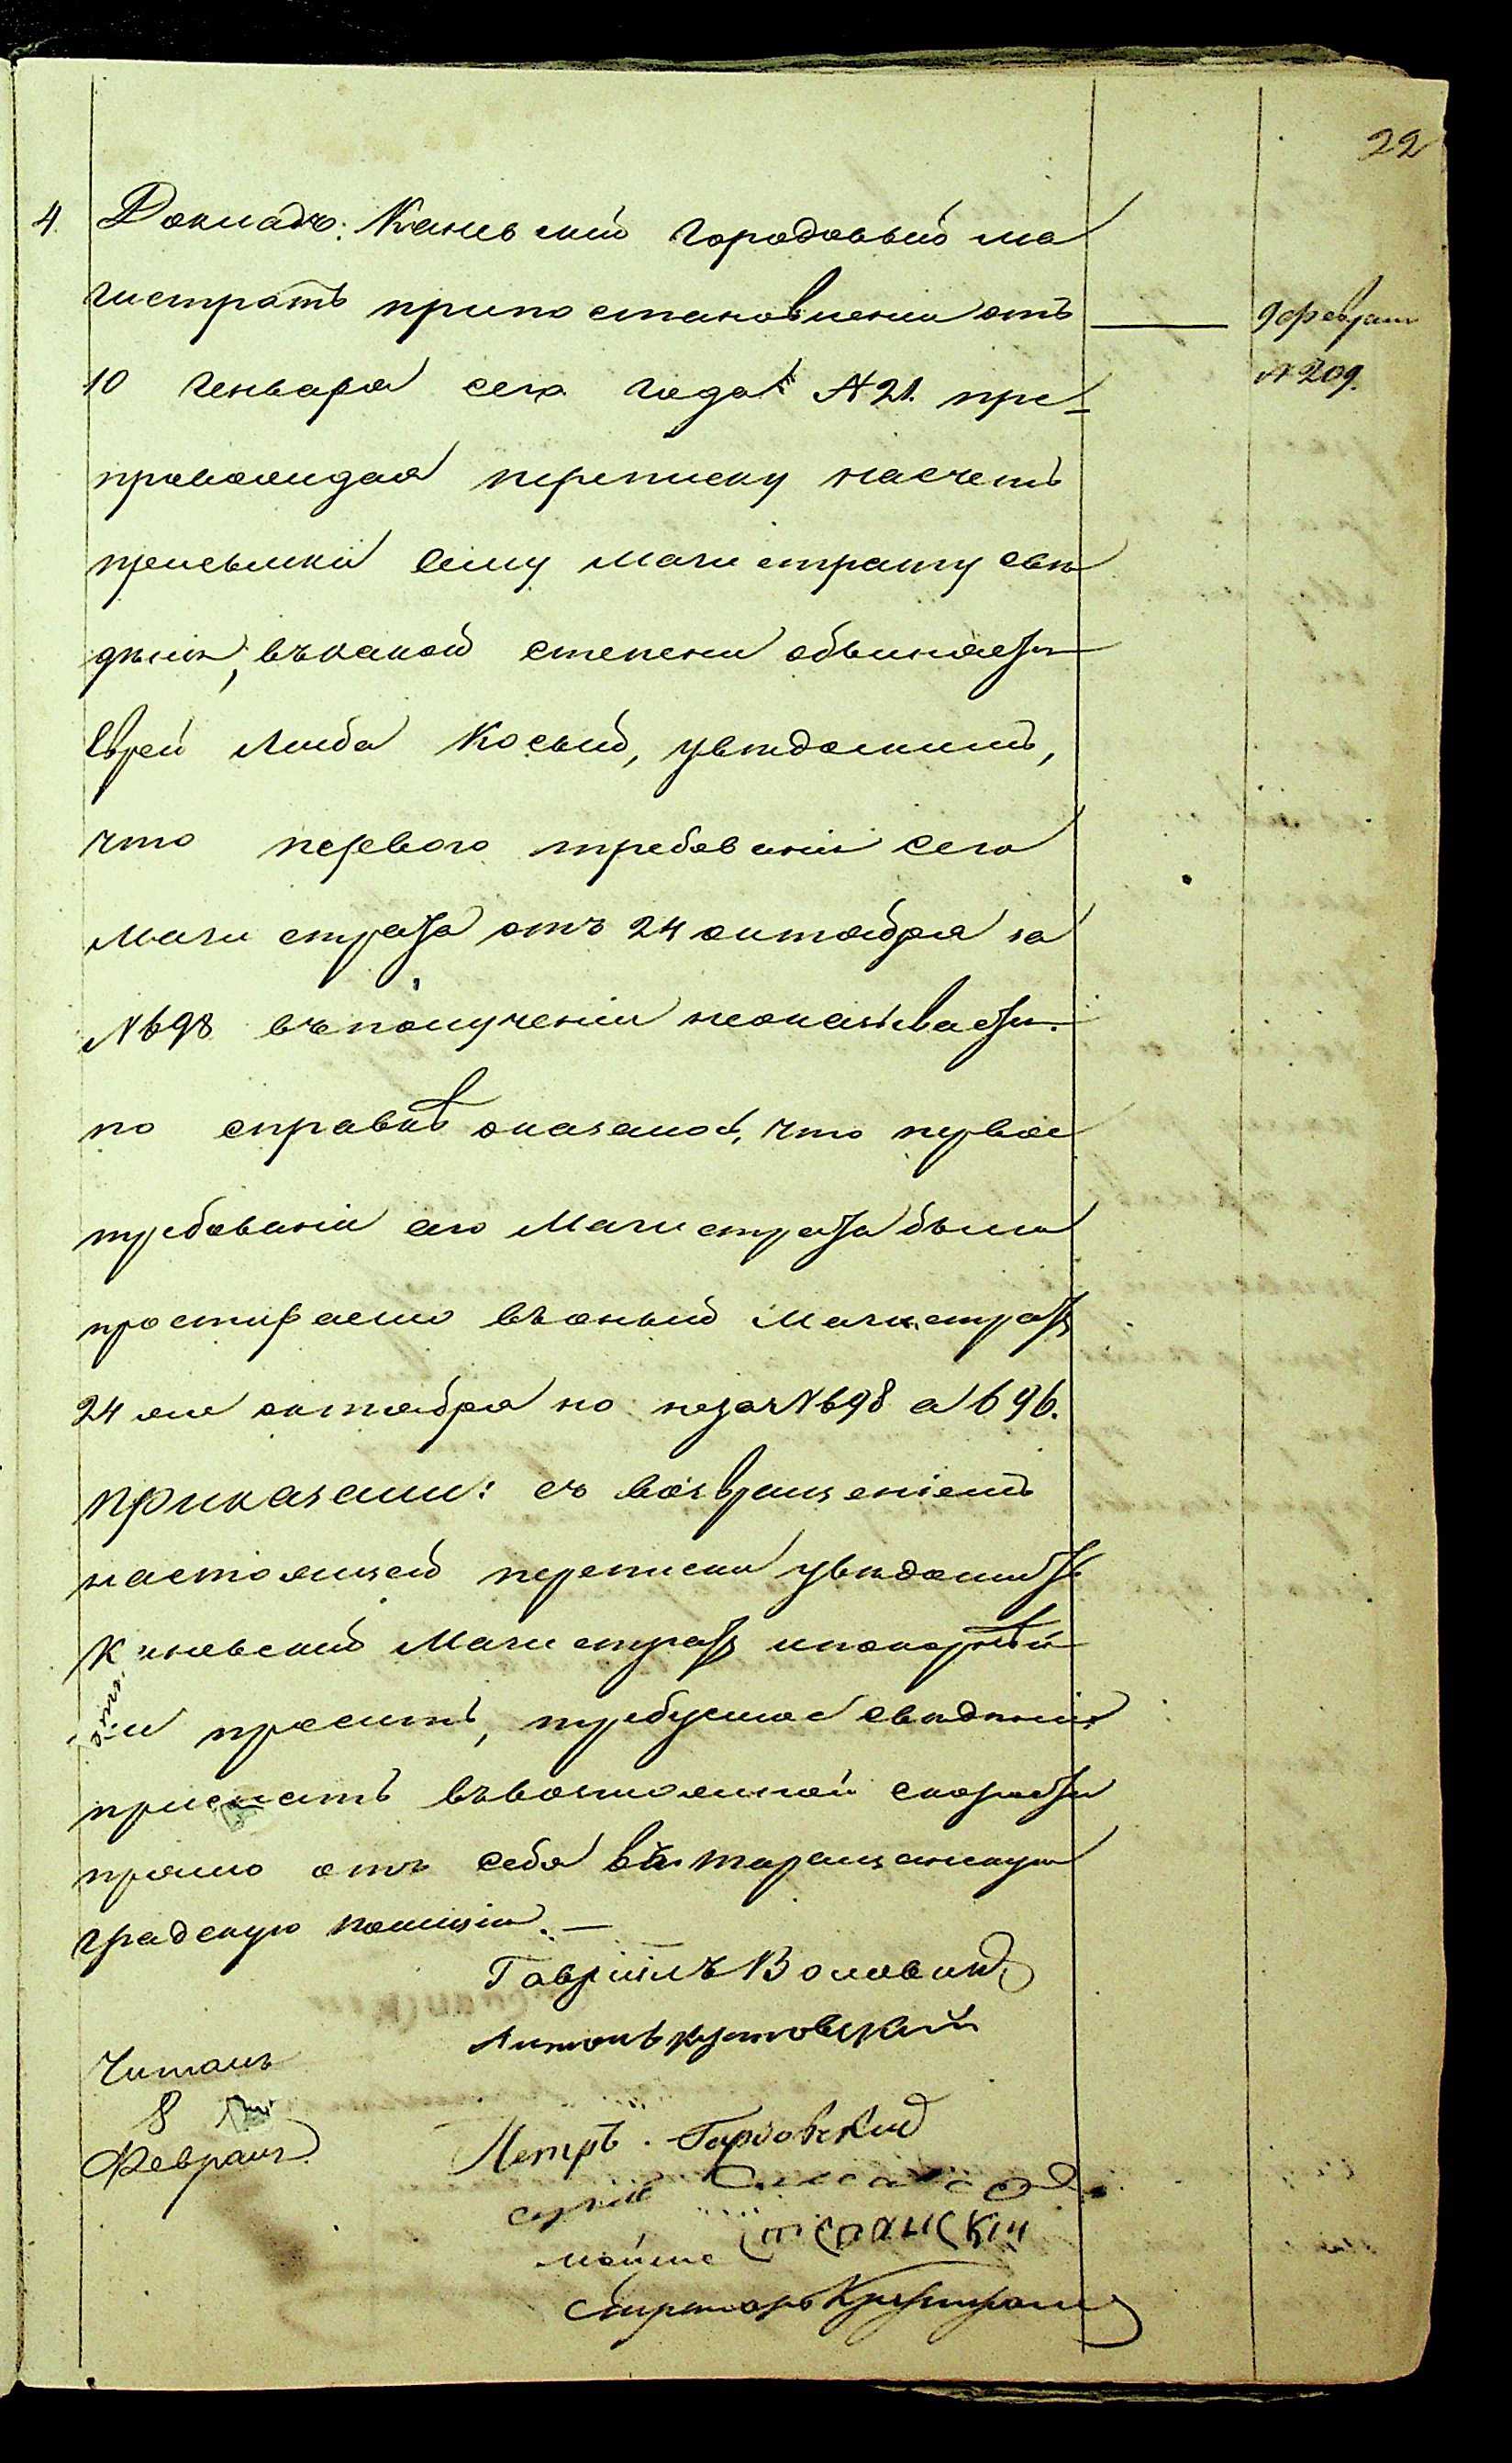 22
4. Докладъ: Каневскій городовый ма
гистратъ припостановленіи отъ
9 февраля
№ 209.
10 Генваря сего года № 21. пре-
провождая переписку насчетъ
присылки сему магистрату свѣ
дѣнія, въкакой степени обвиняется
Еврей Лейба Косый, увѣдомилъ,
что перваго требованія сего
Магистрата отъ 24 октября за
№ 698 въполученіи неоказывается.
по справкѣ оказалось, что первое
требованіе сего Магистрата было
простираемо въоный Магистратъ
24 ями октября но неза № 698 а 696.
приказали: съ возвращеніемъ
настоящей переписки увѣдомить
Каневскій Магистратъ ипокорнѣй
ши просить, требуемое свѣдѣніе
прислать въвозможной скорости
прямо отъ себя въ таращанскую
градскую полицію. —
Гавріилъ Воловик
Антонъ Кутовскій
Читалъ
8
Февраля
Петръ Гарбовский
мойше
Секретарь